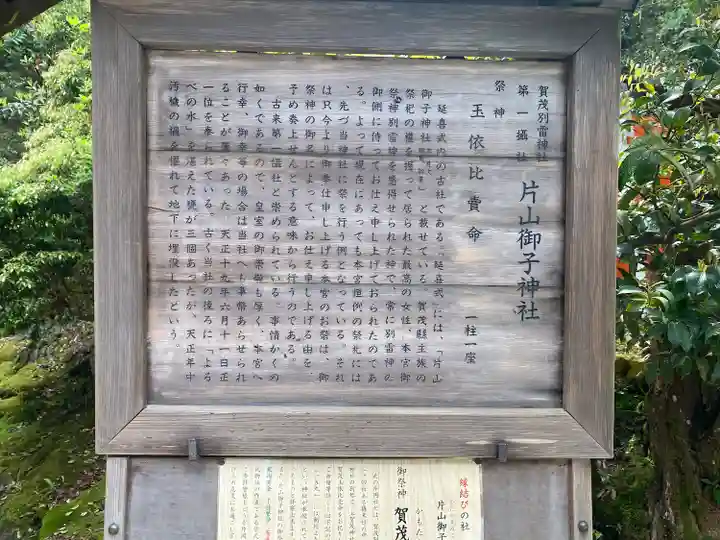 賀茂別雷神社
第一攝社 片山御子神社
祭神 玉依比賣命 一柱一座
延喜式内の古社である。「延喜式」には、「片山
御子神社 と載せている。賀茂縣主族の
祭祀の權を握って居られた最高の女性、本宮御
祭神別雷神を感得せられた神で、常に別雷神の
御側に侍ってお仕え申し上げておられたのであ
る。よって現在にあっても本宮恒例の祭祀には
、先づ当神社に祭を行う例となっている。それ
は只今より御奉仕申し上げる本宮のお祭は、御
祭神の御名によって、お仕え申し上げる由を、
予め奏上せんとする意味から行うのである。
古来第一攝社と崇められている。事情かくの
如くであるので、皇室の御崇敬も厚く、本宮へ
行幸、御幸等の場合は当社へも事幣あらせられ
ることが屡々あった。天正十九年六月十一日正
一位を奉られている。古く当社の後ろに「よる
べの水」を湛えた甕が三個あったが、天正年中
汚穢の禍を憚れて地下に埋没したという。
縁結びの社
片山御子
御祭神 賀茂